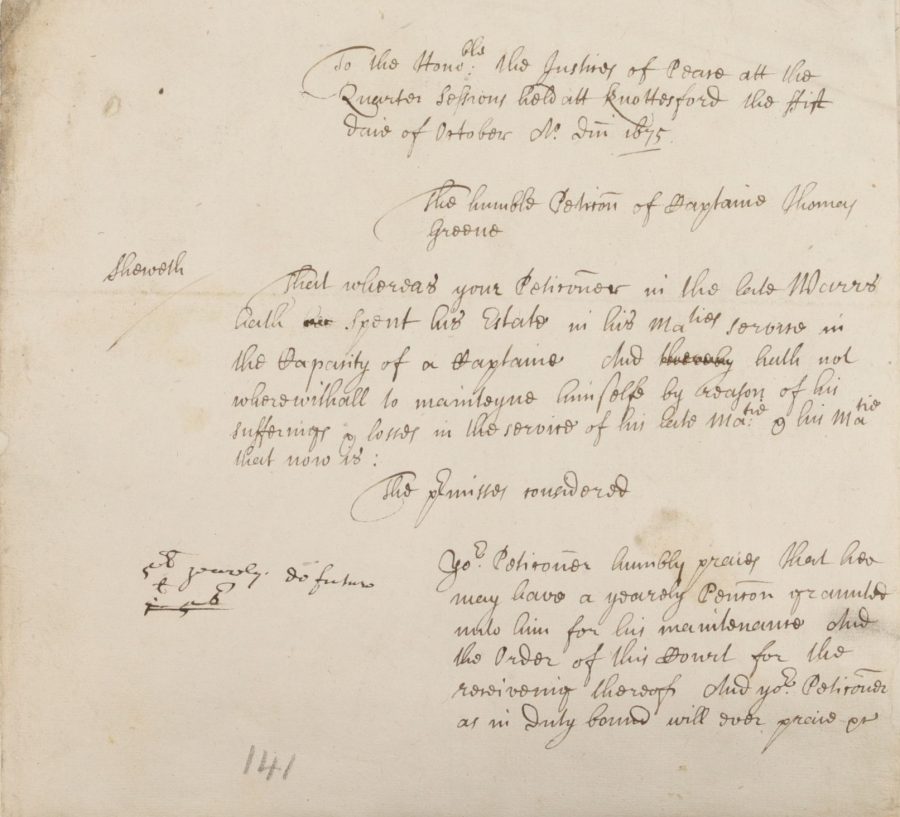 To the Hono:ble the Justices of Peace att the
Quarter Sessions held att Knottesford the fift
daie of October Ao. Dm̃ 1675.
The humble Peticõn of Captaine Thomas
Greene
Sheweth
That whereas your Peticõner in the late Warrs
hath spent his Estate in his Maties service in
the Capacity of a Captaine And thereby hath not
wherewithall to mainteyne himselfe by reason of his
sufferings & losses in the service of his late Ma:tie & his Matie
that now is:
The prmisses considered
Yor. Peticõner humbly praies That hee
may have a yearely Pencõn graunted
unto him for his maintenance And
the Order of this Court for the
receiveing thereof And yor. Peticõner
as in Duty bound will ever praie &c
yearly. de futuro
141